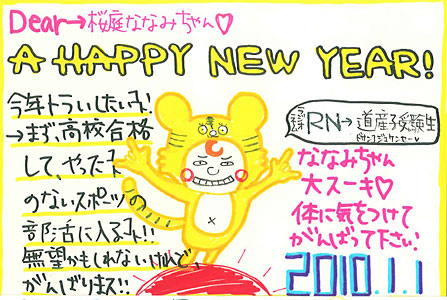 Dear→桜庭ななみちゃん♡
A HAPPY NEW YEAR!
今年トライしたい子!
→まず、高校合格
して、やったコト
のないスポーツ
部活に入る子!!
無望かもしれないけんど、
がんばりまス!!
RN→道産子受験生
ドサンコジュケンセー
ななみちゃん
大スーキ♡
体に気をつけて
がんばって下さい!
2010.1.1